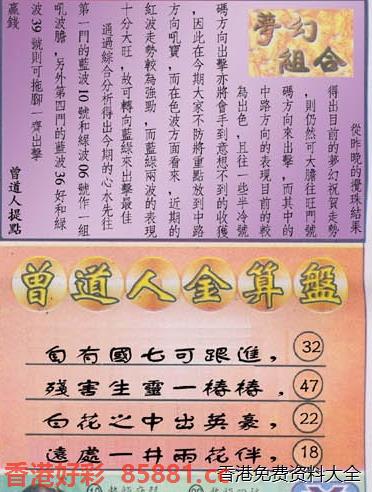 夢幻
組合
從昨晚的攪珠結果
得出目前的夢幻祝賀走勢
，則仍然可大膽往旺門號
碼方向來出擊，而其中的
中路方向的表現目前的較
為出色，且往一些半冷號
碼方向出擊亦將會手到意想不到的收獲
，因此在今期大家不妨將重點放到中路
方向吼寶，而在色波方面看來，近期的
紅波走勢較為強勁，而藍綠兩波的表現
十分大旺，故可轉向藍綠來出擊最佳
通過綜合分析得出今期的心水先往
第一門的藍波10號和綠波06號作一組
吼波膽，另外第四門的藍波36好和綠
波39號則可拖腳一齊出擊
贏錢 曾道人提點
曾道人金算盤
旬有國七可跟進，32
殘害生靈一樁樁，47
白花之中出英豪，22
遠處一井雨花伴，18
香港好彩 85881.cc
香港免费资料大全